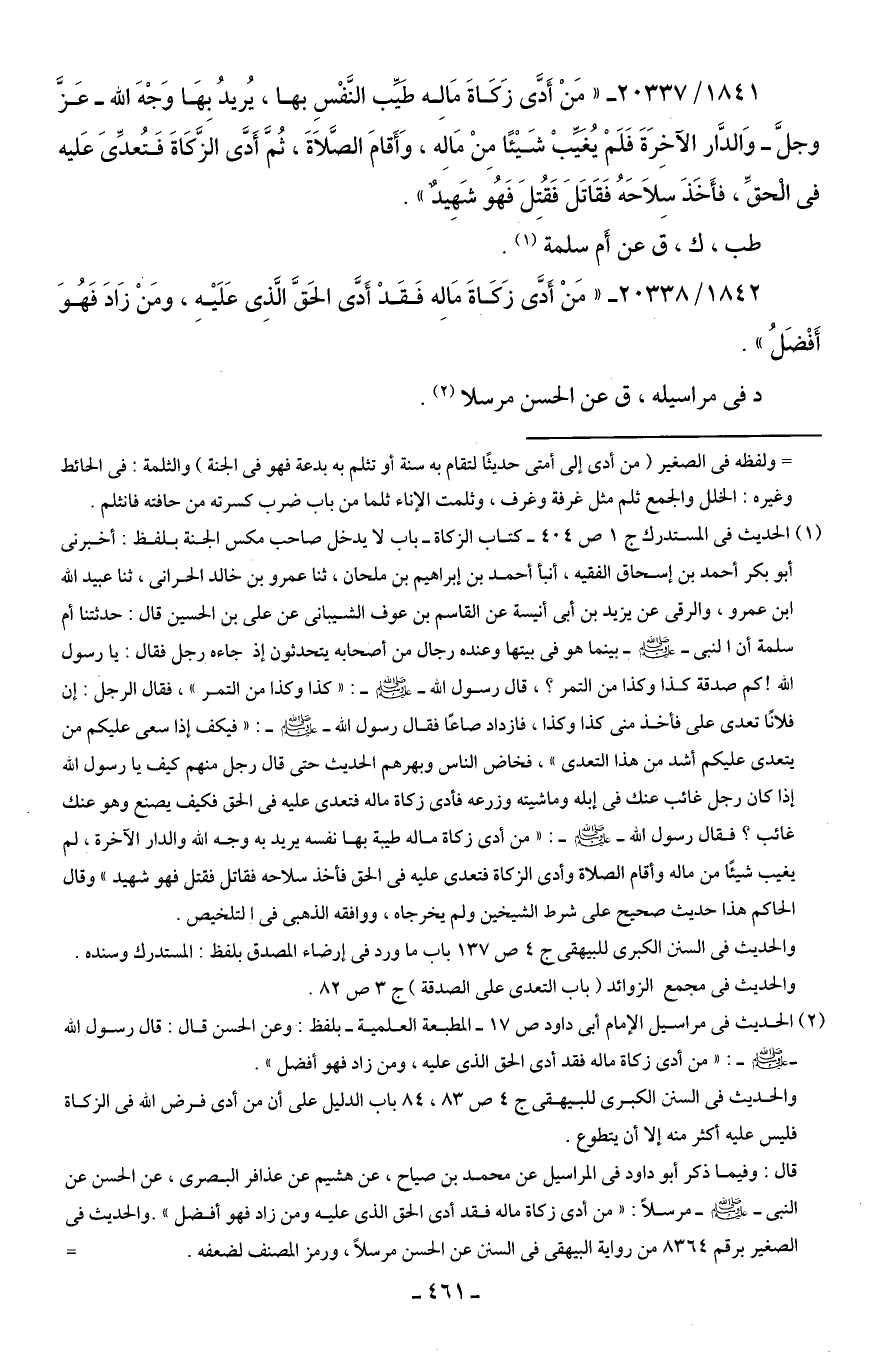 ٢٠٣٣٧/١٨٤١ـ « مَنْ أَدَّى زَكَـاةَ مَالِـه طَيِّب النَّفْسِ بهـا ، يُرِيدُ بِهَـا وَجْهَ الله ـ عَـزَّ
وجلَّ ـ وَالدَّارِ الآخِرَةَ فَلَمْ يُغَيِّبْ شَـيْئًا مِنْ مَاله ، وَأَقَامَ الصَّلَاةَ ، ثُمَّ أَدَّى الزَّكَاةَ فَـتُعدِّىَ عَليه
فى الْحقِّ ، فأَخَذَ سِلَاحَهُ فَقَاتَلَ فَقُتِلَ فَهُو شَهِيدٌ » .
طب ، ك ، ق عن أم سلمة (١) .
٢٠٣٣٨/١٨٤٢ـ « مَنْ أَدَّى زَكَـاةَ مَاله فَـقَـدْ أَدَّى الحَقَّ الَّذِى عَلَيْـهِ ، ومَنْ زَادَ فَهُـوَ
أَفْضَلُ » .
د فى مراسيله ، ق عن الحسن مرسلا (٢) .
= ولفظه فى الصغير ( من أدى إلى أمتى حديثًا لتقام به سنة أو تثلم به بدعة فهو فى الجنة ) والثلمة : فى الحائط
وغيره : الخلل والجمع ثلم مثل غرفة وغرف ، وثلمت الإناء ثلما من باب ضرب كسرته من حافته فانثلم .
(١) الحديث فى المستدرك ج ١ ص ٤٠٤ ـ كتـاب الزكاة ـ باب لا يدخل صاحب مكس الجـنة بـلفـظ : أخـبرنى
أبو بكر أحمد بن إسـحاق الفقيه ، أنبأ أحمـد بن إبراهيم بن ملحان ، ثنا عمرو بن خالد الحـرانى ، ثنا عبيد الله
ابن عمرو ، والرقى عن يزيد بن أبى أنيسة عن القاسم بن عوف الشيبانى عن على بن الحسين قال : حدثتنا أم
سلمة أن ا لنبى ـ ﷺ ـ بينما هو فى بيتها وعنده رجال من أصحابه يتحدثون إذ جاءه رجل فقال : يا رسول
الله !كم صدقة كـذا وكذا من التمر ؟ ، قال رسـول الله ـ ﷺ ـ : « كذا وكذا من التمـر » ، فقال الرجل : إن
فلانًا تعدى على فأخـذ منى كذا وكذا ، فازداد صاعًا فقـال رسول الله ـ ﷺ ـ : « فيكف إذا سعى عليكم من
يتعدى عليكم أشد من هذا التعدى » ، فخاض الناس وبهرهم الحديث حتى قال رجل منهم كيف يا رسول الله
إذا كان رجل غائب عنك فى إبله وماشيته وزرعه فأدى زكاة ماله فتعدى عليه فى الحق فكيف يصنع وهو عنك
غائب ؟ فـقال رسول الله ـ ﷺ ـ : « من أدى زكاة مـاله طيبة بهـا نفسه يريد به وجـه الله والدار الآخرة ، لم
يغيب شيئًا من ماله وأقام الصلاة وأدى الزكاة فتعدى عليه فى الحق فأخذ سلاحه فقاتل فقتل فهو شهيد » وقال
الحاكم هذا حديث صحيح على شرط الشيخين ولم يخرجاه ، ووافقه الذهبى فى ا لتلخيص .
والحديث فى السنن الكبرى للبيهقى ج ٤ ص ١٣٧ باب ما ورد فى إرضاء المصدق بلفظ : المستدرك وسنده .
والحديث فى مجمع الزوائد ( باب التعدى على الصدقة ) ج ٣ ص ٨٢ .
(٢) الحـديث فى مراسيل الإمام أبى داود ص ١٧ ـ المطبـعة العـلمـية ـ بلفظ : وعن الحسن قـال : قال رسـول الله
ـ ﷺ ـ : « من أدى زكاة ماله فقد أدى الحق الذى عليه ، ومن زاد فهو أفضل » .
والحـديث فى السنن الكبـرى للبـيهقـى ج ٤ ص ٨٣ ، ٨٤ باب الدليل على أن من أدى فـرض الله فى الزكـاة
فليس عليه أكثر منه إلا أن يتطوع .
قال : وفيمـا ذكر أبو داود فى المراسيل عن محمـد بن صياح ، عن هشيم عن عذافر البـصرى ، عن الحسن عن
النبى ـ ﷺ ـ مرسـلاً : « من أدى زكاة ماله فـقد أدى الحق الذى عليـه ومن زاد فهو أفـضل » .والحديث فى
الصغير برقم ٨٣٦٤ من رواية البيهقى فى السنن عن الحسن مرسلاً ، ورمز المصنف لضعفه . =
ـ ٤٦١ ـ